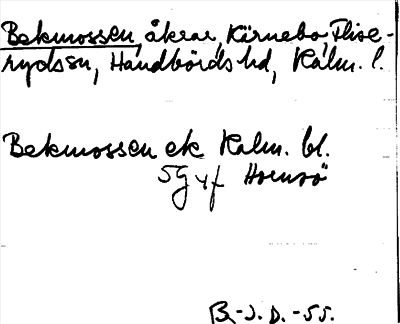 Bekmossen, åkrar, Kärnebo, Flise-
rydssn, Handbörds hd, Kalm. l.
Bekmossen ek Kalm. bl.
5G yf Hornsö
B-J. D. -55.